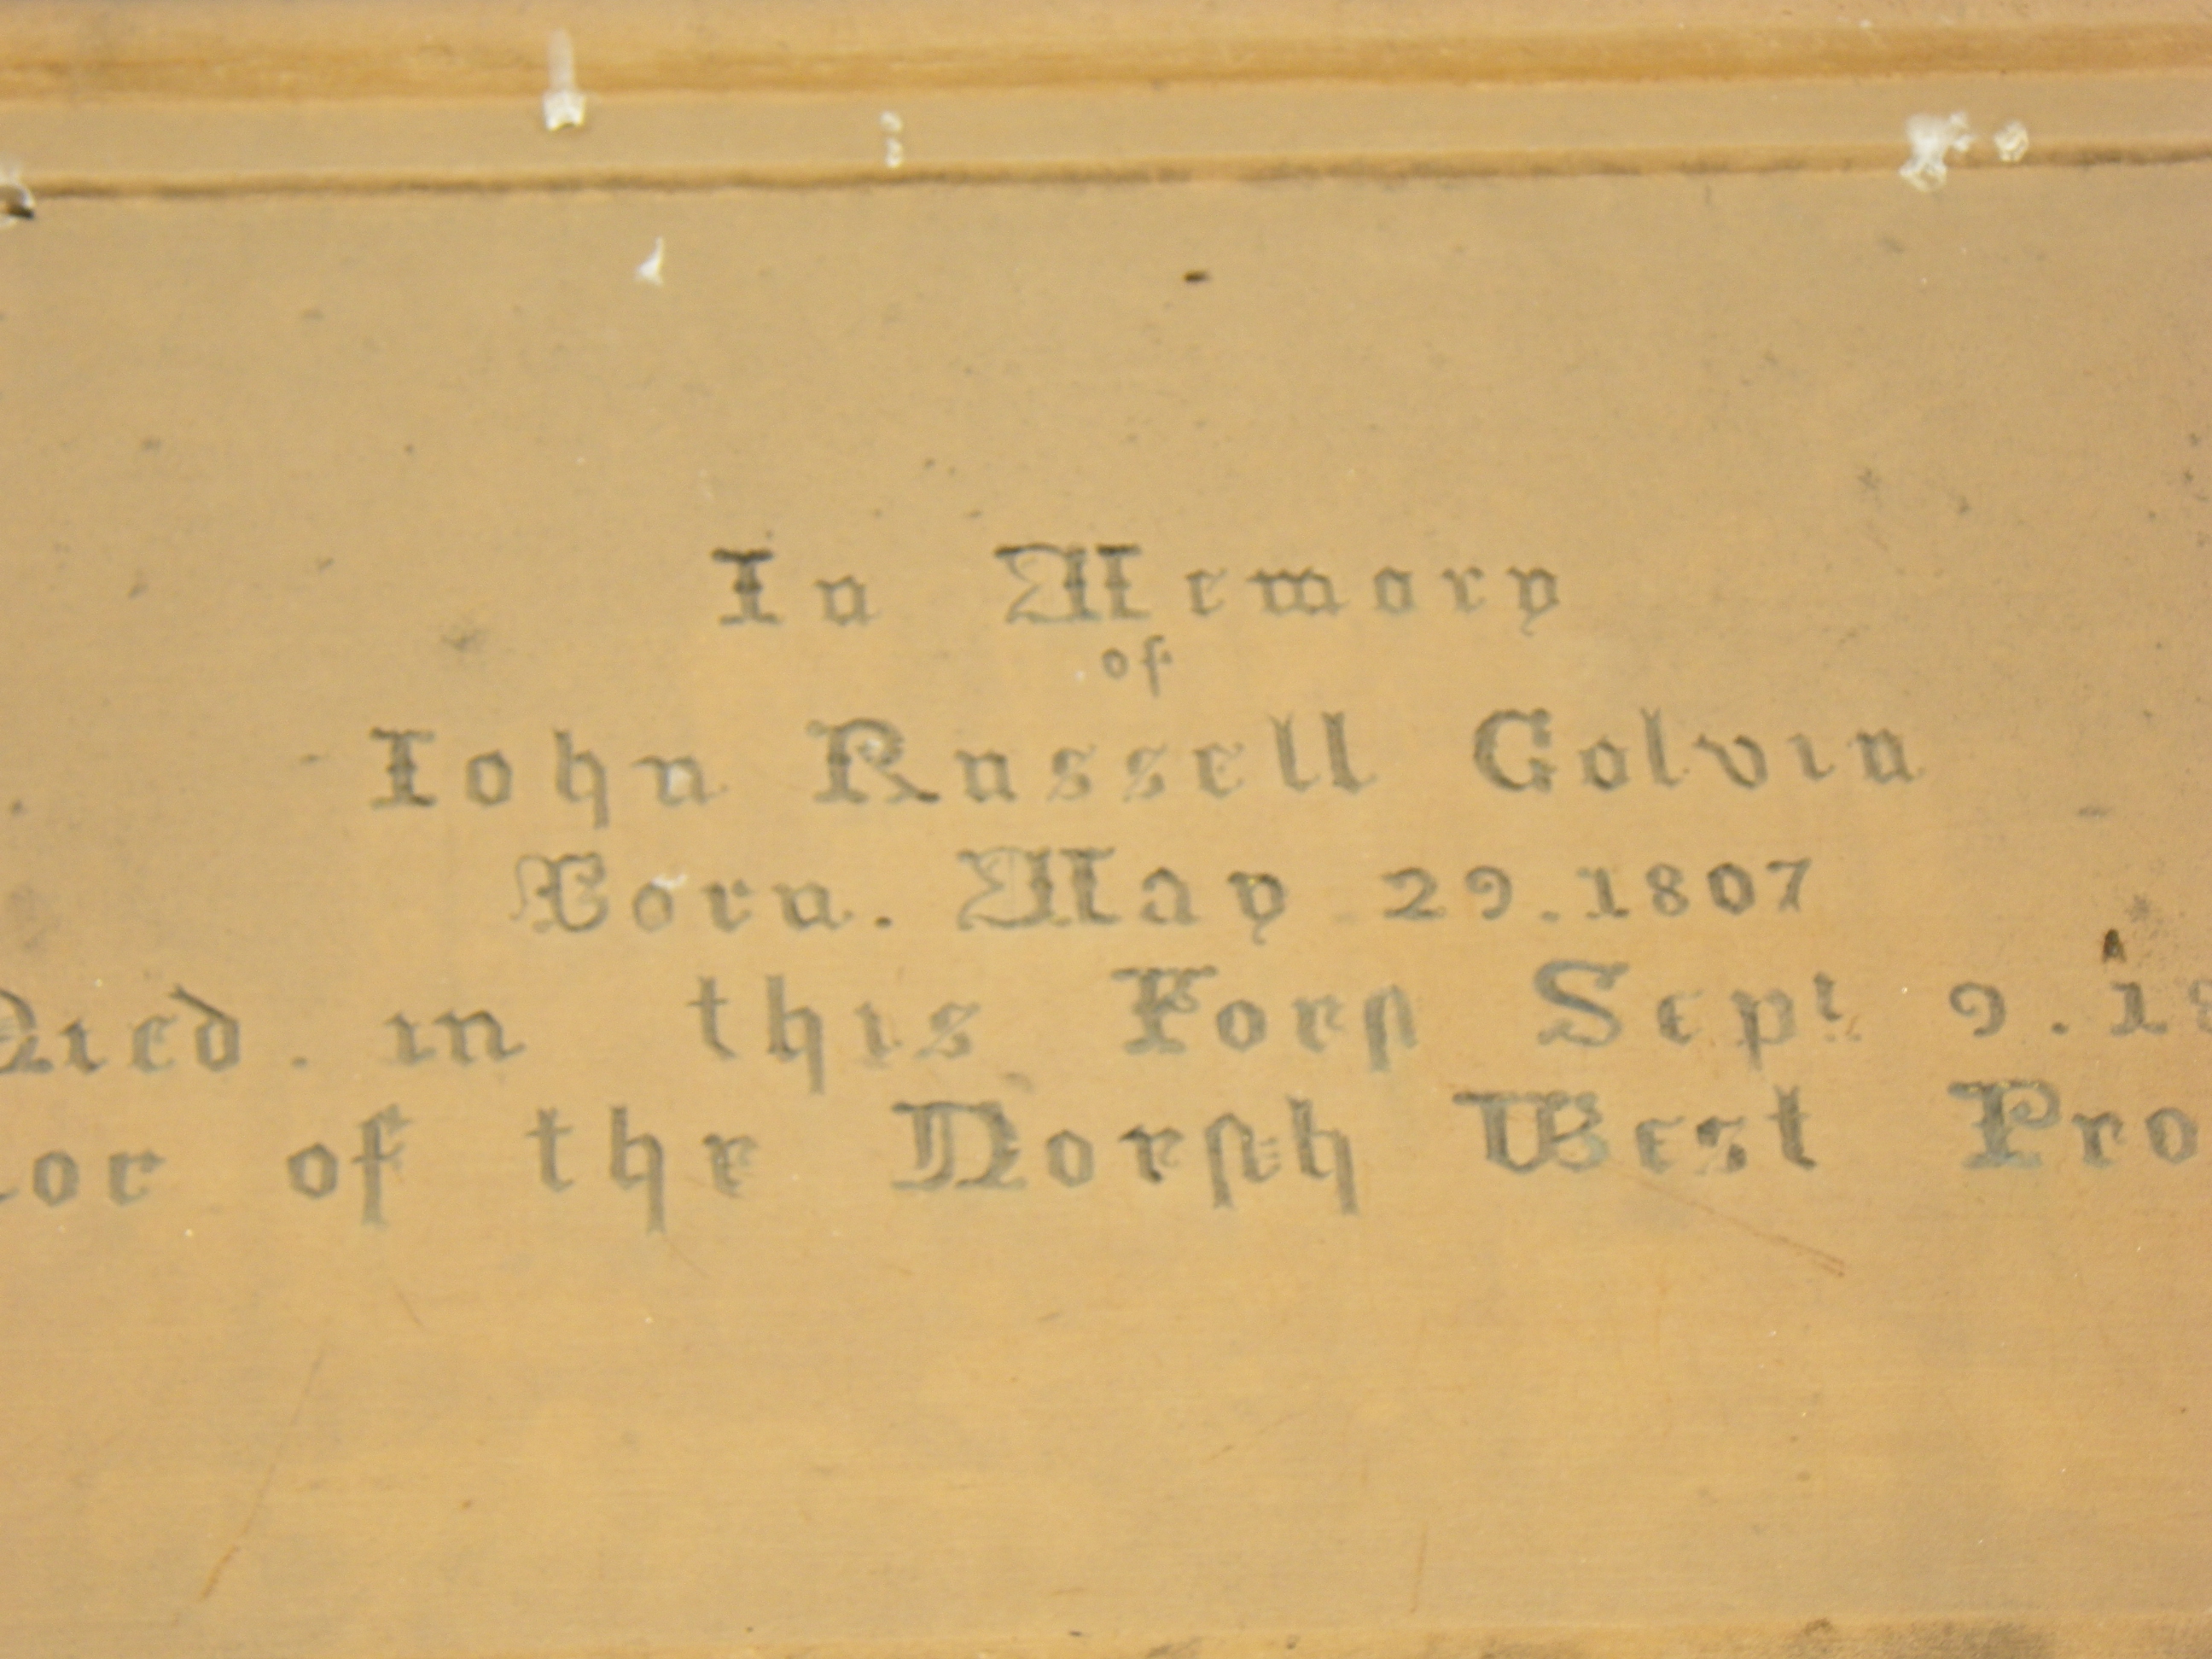 In Memory
of
Iohn Russell Colvin
Born. May 29. 1807
Died. in this Fort Sept 9. 18
of the North West Pro